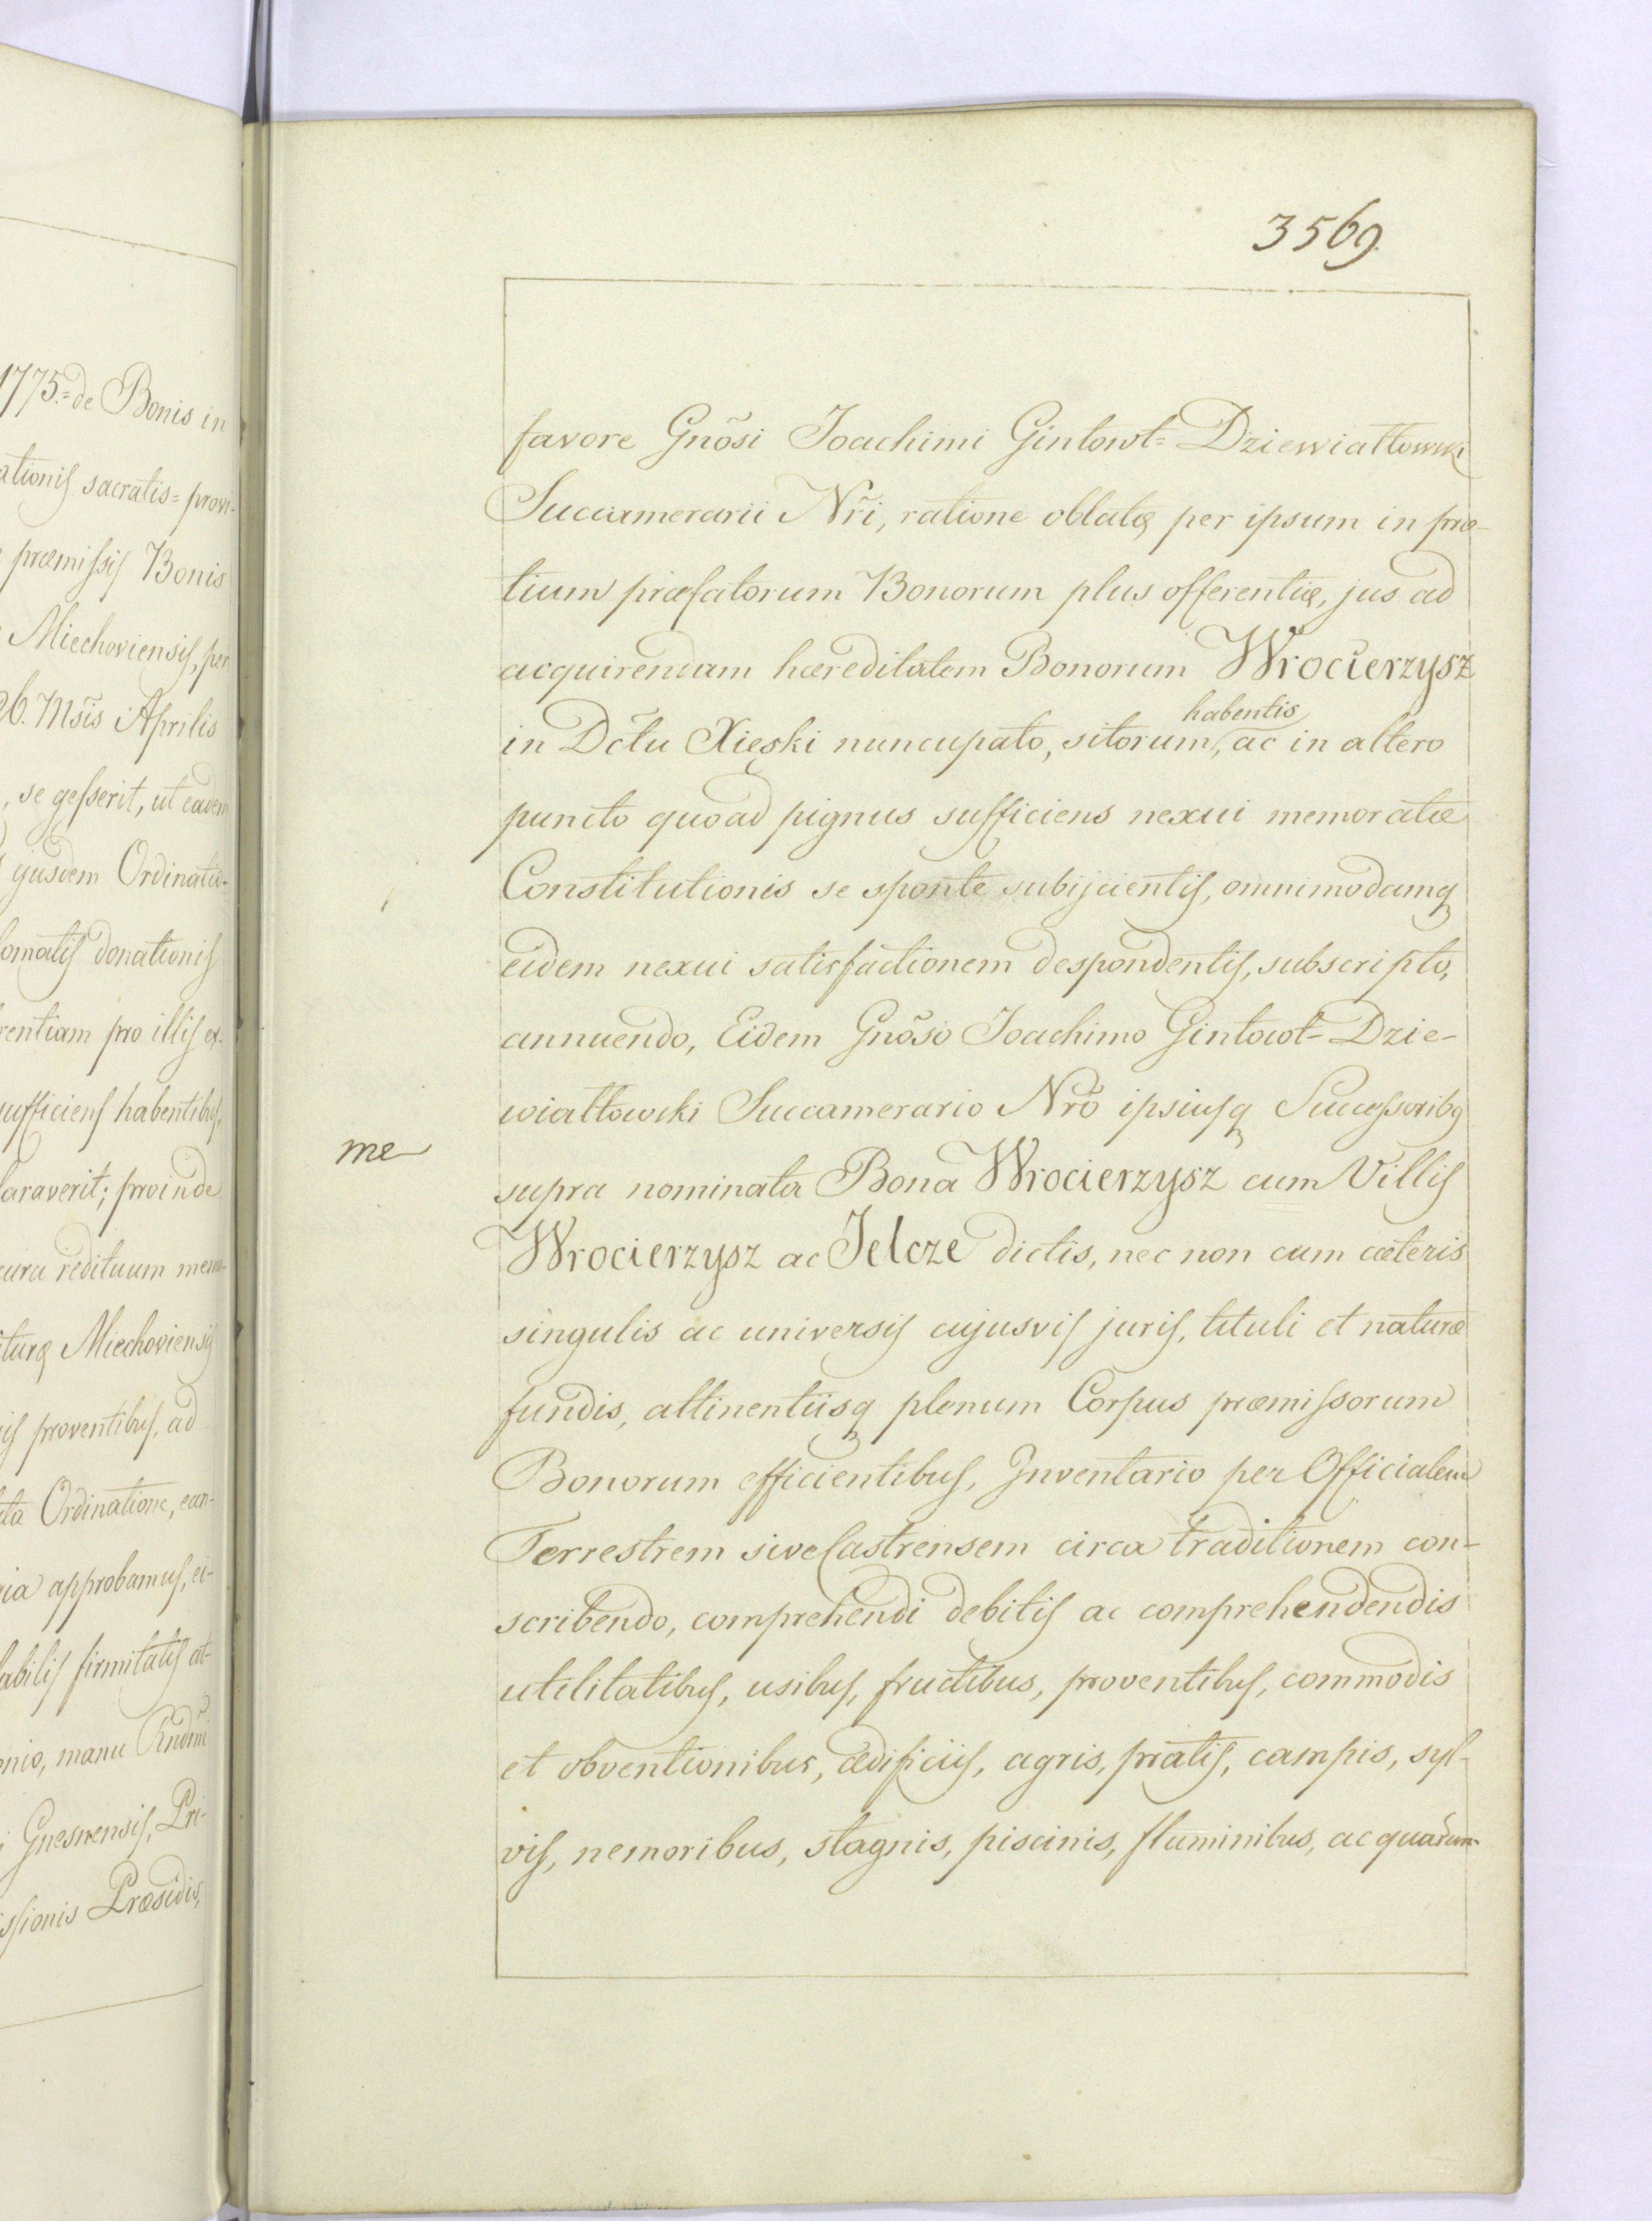 1775.= de Bonis in
ationis sacratis= provi-
præmissis Bonis
Miechoviensis, per
26. Ms̃is Aprilis
, se gesserit, ut eadem
ejusdem Ordinatio-
lomatis donationis
rentiam pro illis ex-
sufficiens habentibus,
laraverit; proinde
cura redituum mem-
turæ Miechoviensis
is proventibus, ad
ta Ordinatione, ean-
ia approbamus, ei-
abilis firmitatis at-
onio, manu Rndm̃i
i Gnesnensis, Pri-
issionis Præsidis,
3569.
favore Gnõsi Joachimi Gintowt= Dziewiałtowski
Succamerarii Nr̃i, ratione oblatæ per ipsum in præ-
tium præfatorum Bonorum plus offerentiæ, jus ad
acquirendam hæreditatem Bonorum Wrocierzysz
habentis
in Dc̃tu Xięski nuncupato, sitorum, ac in altero
puncto quoad pignus sufficiens nexui memoratæ
Constitutionis se sponte subijcientis, omnimodamq
eidem nexui satisfactionem despondentis, subscripto,
annuendo, Eidem Gnõso Joachimo Gintowt= Dzie-
wiałtowski Succamerario Nrõ ipsiusq Successoribq
me
supra nominata Bona Wrocierzysz cum Villis
Wrocierzysz ac Jelcze dictis, nec non cum cæteris
singulis ac universis cujusvis juris, tituli et naturæ
fundis, attinentiisq plenum Corpus præmissorum
Bonorum efficientibus, Inventario per Officialem
Terrestrem sive Castrensem circa traditionem con-
scribendo, comprehendi debitis ac comprehendendis
utilitatibus, usibus, fructibus, proventibus, commodis
et obventionibus, ædificiis, agris, pratis, campis, syl-
vis, nemoribus, stagnis, piscinis, fluminibus, ac quarum-